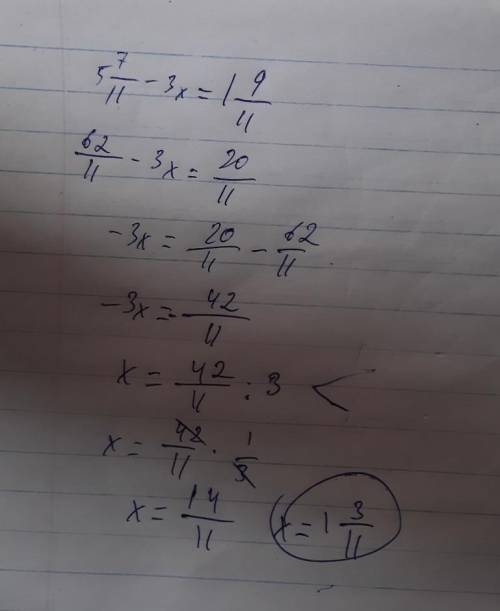 5 7/11 - 3x = 1 9/11
62/11 - 3x = 20/11
-3x = 20/11 - 62/11
-3x = - 42/11
x = 42/11 : 3
x = 42/11 · 1/3
x = 14/11 x = 1 3/11